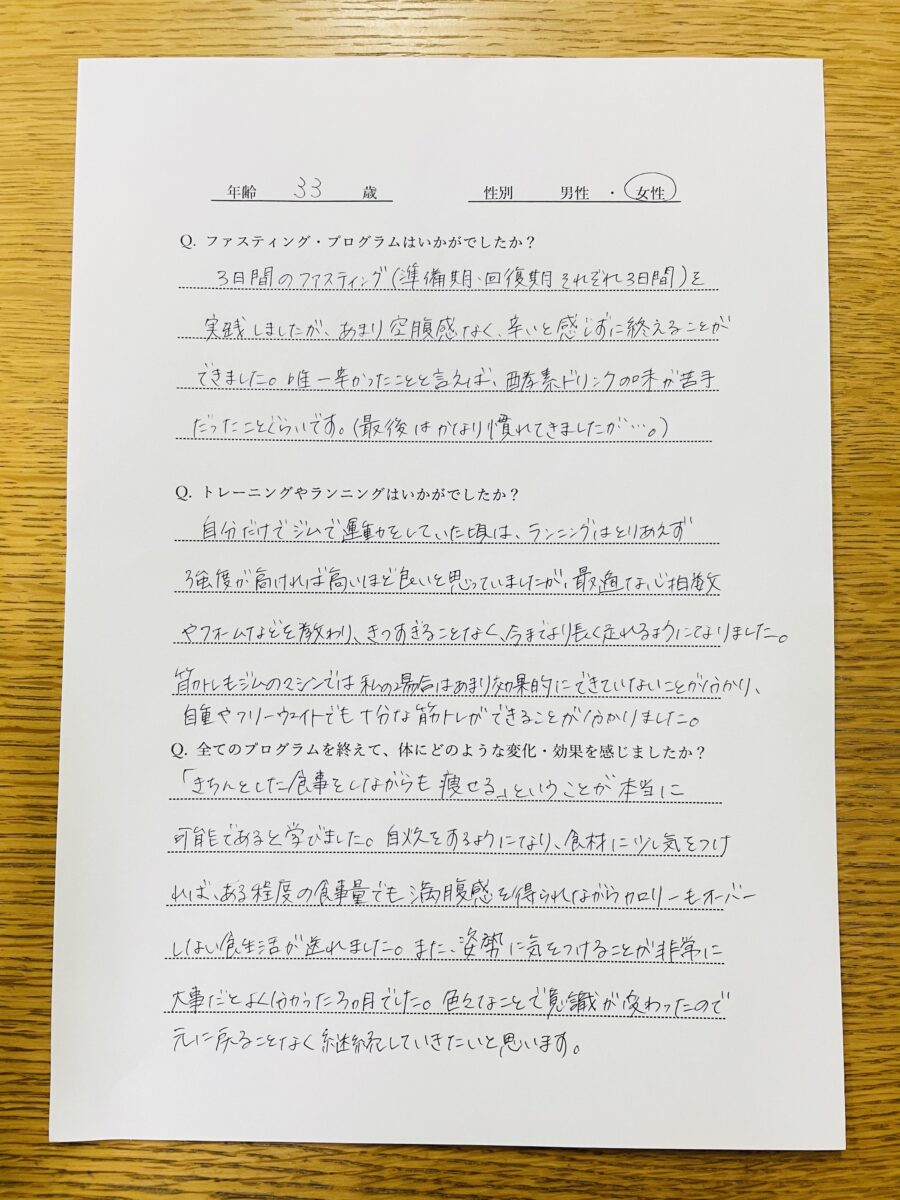 年齢 33 歳 性別 男性 ・ 女性
Q. ファスティング・プログラムはいかがでしたか？
3日間のファスティング(準備期、回復期それぞれ3日間)を
実践しましたが、あまり空腹感なく、辛いと感じずに終えることが
できました。唯一辛かったことと言えば、酵素ドリンクの味が苦手
だったことぐらいです。(最後はかなり慣れてきましたが…。)
Q. トレーニングやランニングはいかがでしたか？
自分だけでジムで運動をしていた頃は、ランニングはとりあえず
強度が高ければ高いほど良いと思っていましたが、最適な心拍数
やフォームなどを教わり、きつすぎることなく、今までより長く走れるようになりました。
筋トレもジムのマシンでは私の場合はあまり効果的にできていないことが分かり、
自重やフリーウエイトでも十分な筋トレができることが分かりました。
Q. 全てのプログラムを終えて、体にどのような変化・効果を感じましたか？
「きちんとした食事をしながらも痩せる」ということが本当に
可能であると学びました。自炊をするようになり、食材に少し気をつけ
れば、ある程度の食事量でも満腹感を得られながらカロリーもオーバー
しない食生活が送れました。また、姿勢に気をつけることが非常に
大事だとよく分かった3ヵ月でした。色々なことで意識が変わったので
元に戻ることなく継続していきたいと思います。